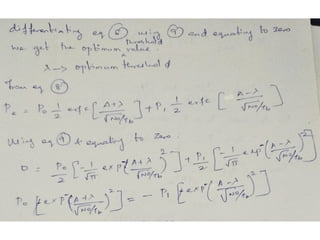 differentiating eq ⑧ using ⑨ and equating to zero
we get the optimum threshold value.
λ → optimum threshold
From eq ⑧
Pe = P0 1/2 erfc [ A+λ / √N0/Tb ] + P1 1/2 erfc [ A-λ / √N0/Tb ]
Using eq ⑨ & equating to zero.
0 = P0/2 [ -1/√π exp^-( A+λ / √N0/Tb )^2 ] + P1/2 [ -1/√π exp^-( A-λ / √N0/Tb )^2 ]
P0 [ exp^-( A+λ / √N0/Tb )^2 ] = - P1 [ exp^-( A-λ / √N0/Tb )^2 ]